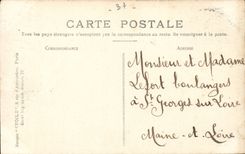 37
CARTE POSTALE
Tous les pays étrangers n'acceptent pas la correspondance au recto. (Se renseigner à la poste)
CORRESPONDANCE
ADRESSE
Monsieur et Madame
Lefort boulangers
à St Georges sur Loire
Maine-et-Loire